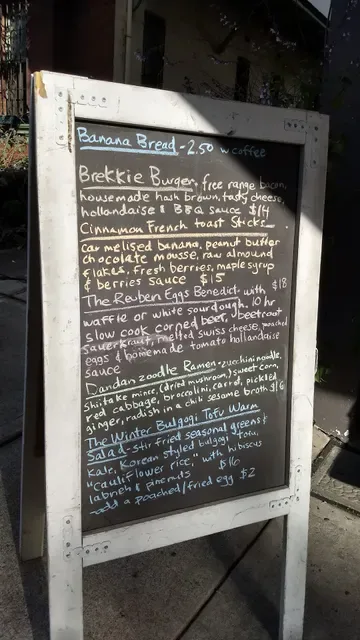 Banana Bread - 2.50 w coffee
Brekkie Burger, free range bacon,
housemade hash brown, tasty cheese,
hollandaise & BBQ sauce $14
Cinnamon French toast Sticks
carmelised banana, peanut butter
chocolate mousse, raw almound
flakes, fresh berries, maple syrup
& berries sauce $15
The Reuben Eggs Benedict - with $18
waffle or white sourdough. 10 hr
slow cook corned beef, beetroot
Sauerkraut, melted swiss cheese, poached
eggs & homemade tomato hollandaise
sauce
Dandan zoodle Ramen - zucchini noodle,
shiitake mince, (dried mushroom,) sweet corn,
red cabbage, broccolini, carrot, pickled
ginger, radish in a chili sesame broth $16
The Winter Bulgogi Tofu Warm
Salad - stir fried seasonal greens &
Kale, Korean styled bulgogi tofu,
"cauliflower rice," with hibiscus
labneh & pinenuts $16
add a poached/fried egg $2